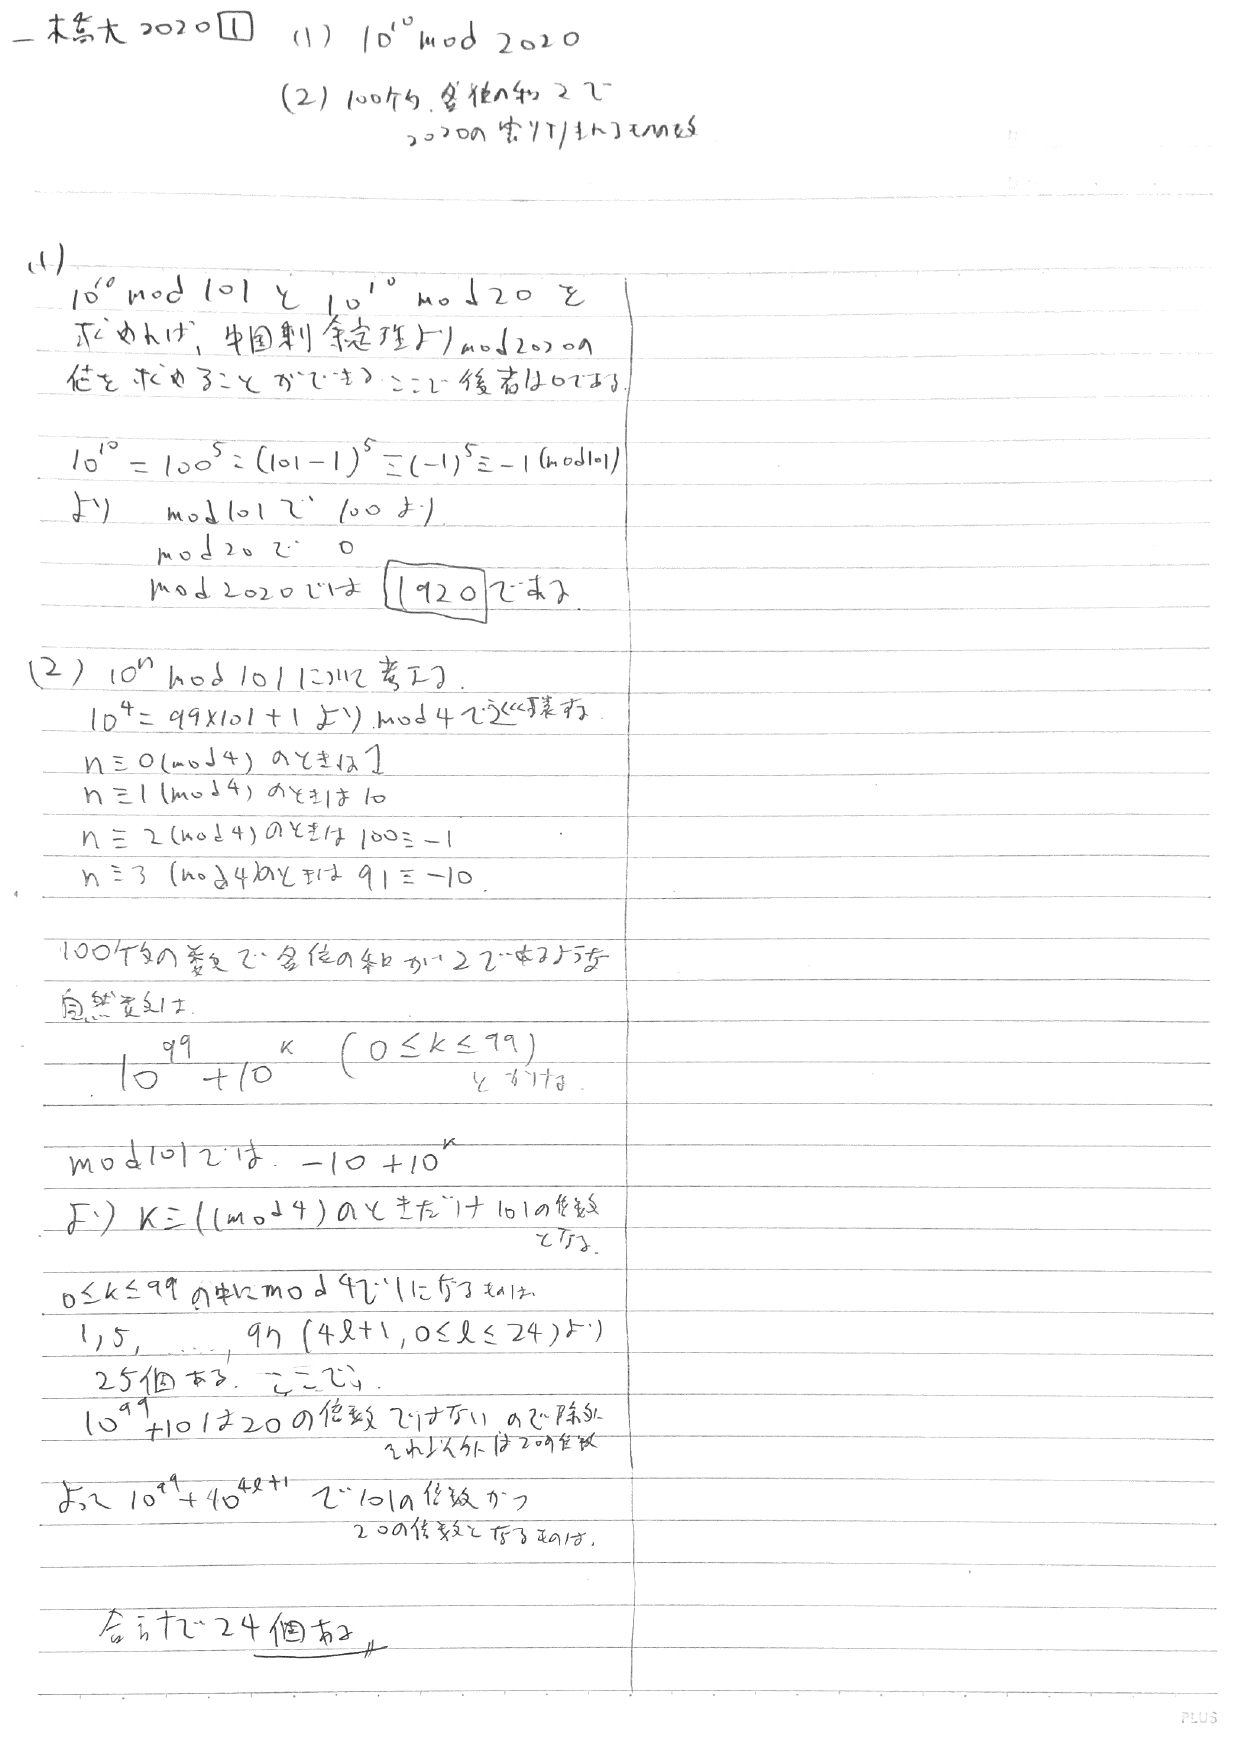 一橋大 2020 1 (1) 10^10 mod 2020
(2) 100ケタ、各位の和2で
2020の割りきれるもの数
(1)
10^10 mod 101 と 10^10 mod 20 を
求めれば、中国剰余定理より mod 2020の
値を求めることができる ここで後者は0である.
10^10 = 100^5 = (101-1)^5 ≡ (-1)^5 ≡ -1 (mod 101)
より mod 101 で 100 より
mod 20 で 0
mod 2020 では 1920 である
(2) 10^n mod 101 について考える.
10^4 = 99×101+1 より mod 4 で巡環する
n≡0 (mod 4) のときは 1
n≡1 (mod 4) のときは 10
n≡2 (mod 4) のときは 100≡-1
n≡3 (mod 4) のときは 91≡-10
100ケタの数で各位の和が2であるような
自然数は
10^99 + 10^k (0≤k≤99)
とかける.
mod 101 では. -10+10^k
より k≡1 (mod 4) のときだけ 101の倍数
となる.
0≤k≤99 の中に mod 4 で 1になるものは.
1, 5, ....., 97 (4l+1, 0≤l≤24) より
25個ある. ここで、
10^99+10は20の倍数ではないので除外
それ以外は20の倍数
よって 10^99+10^4l+1 で 101の倍数かつ
20の倍数となるものは.
合計で 24個ある
PLUS